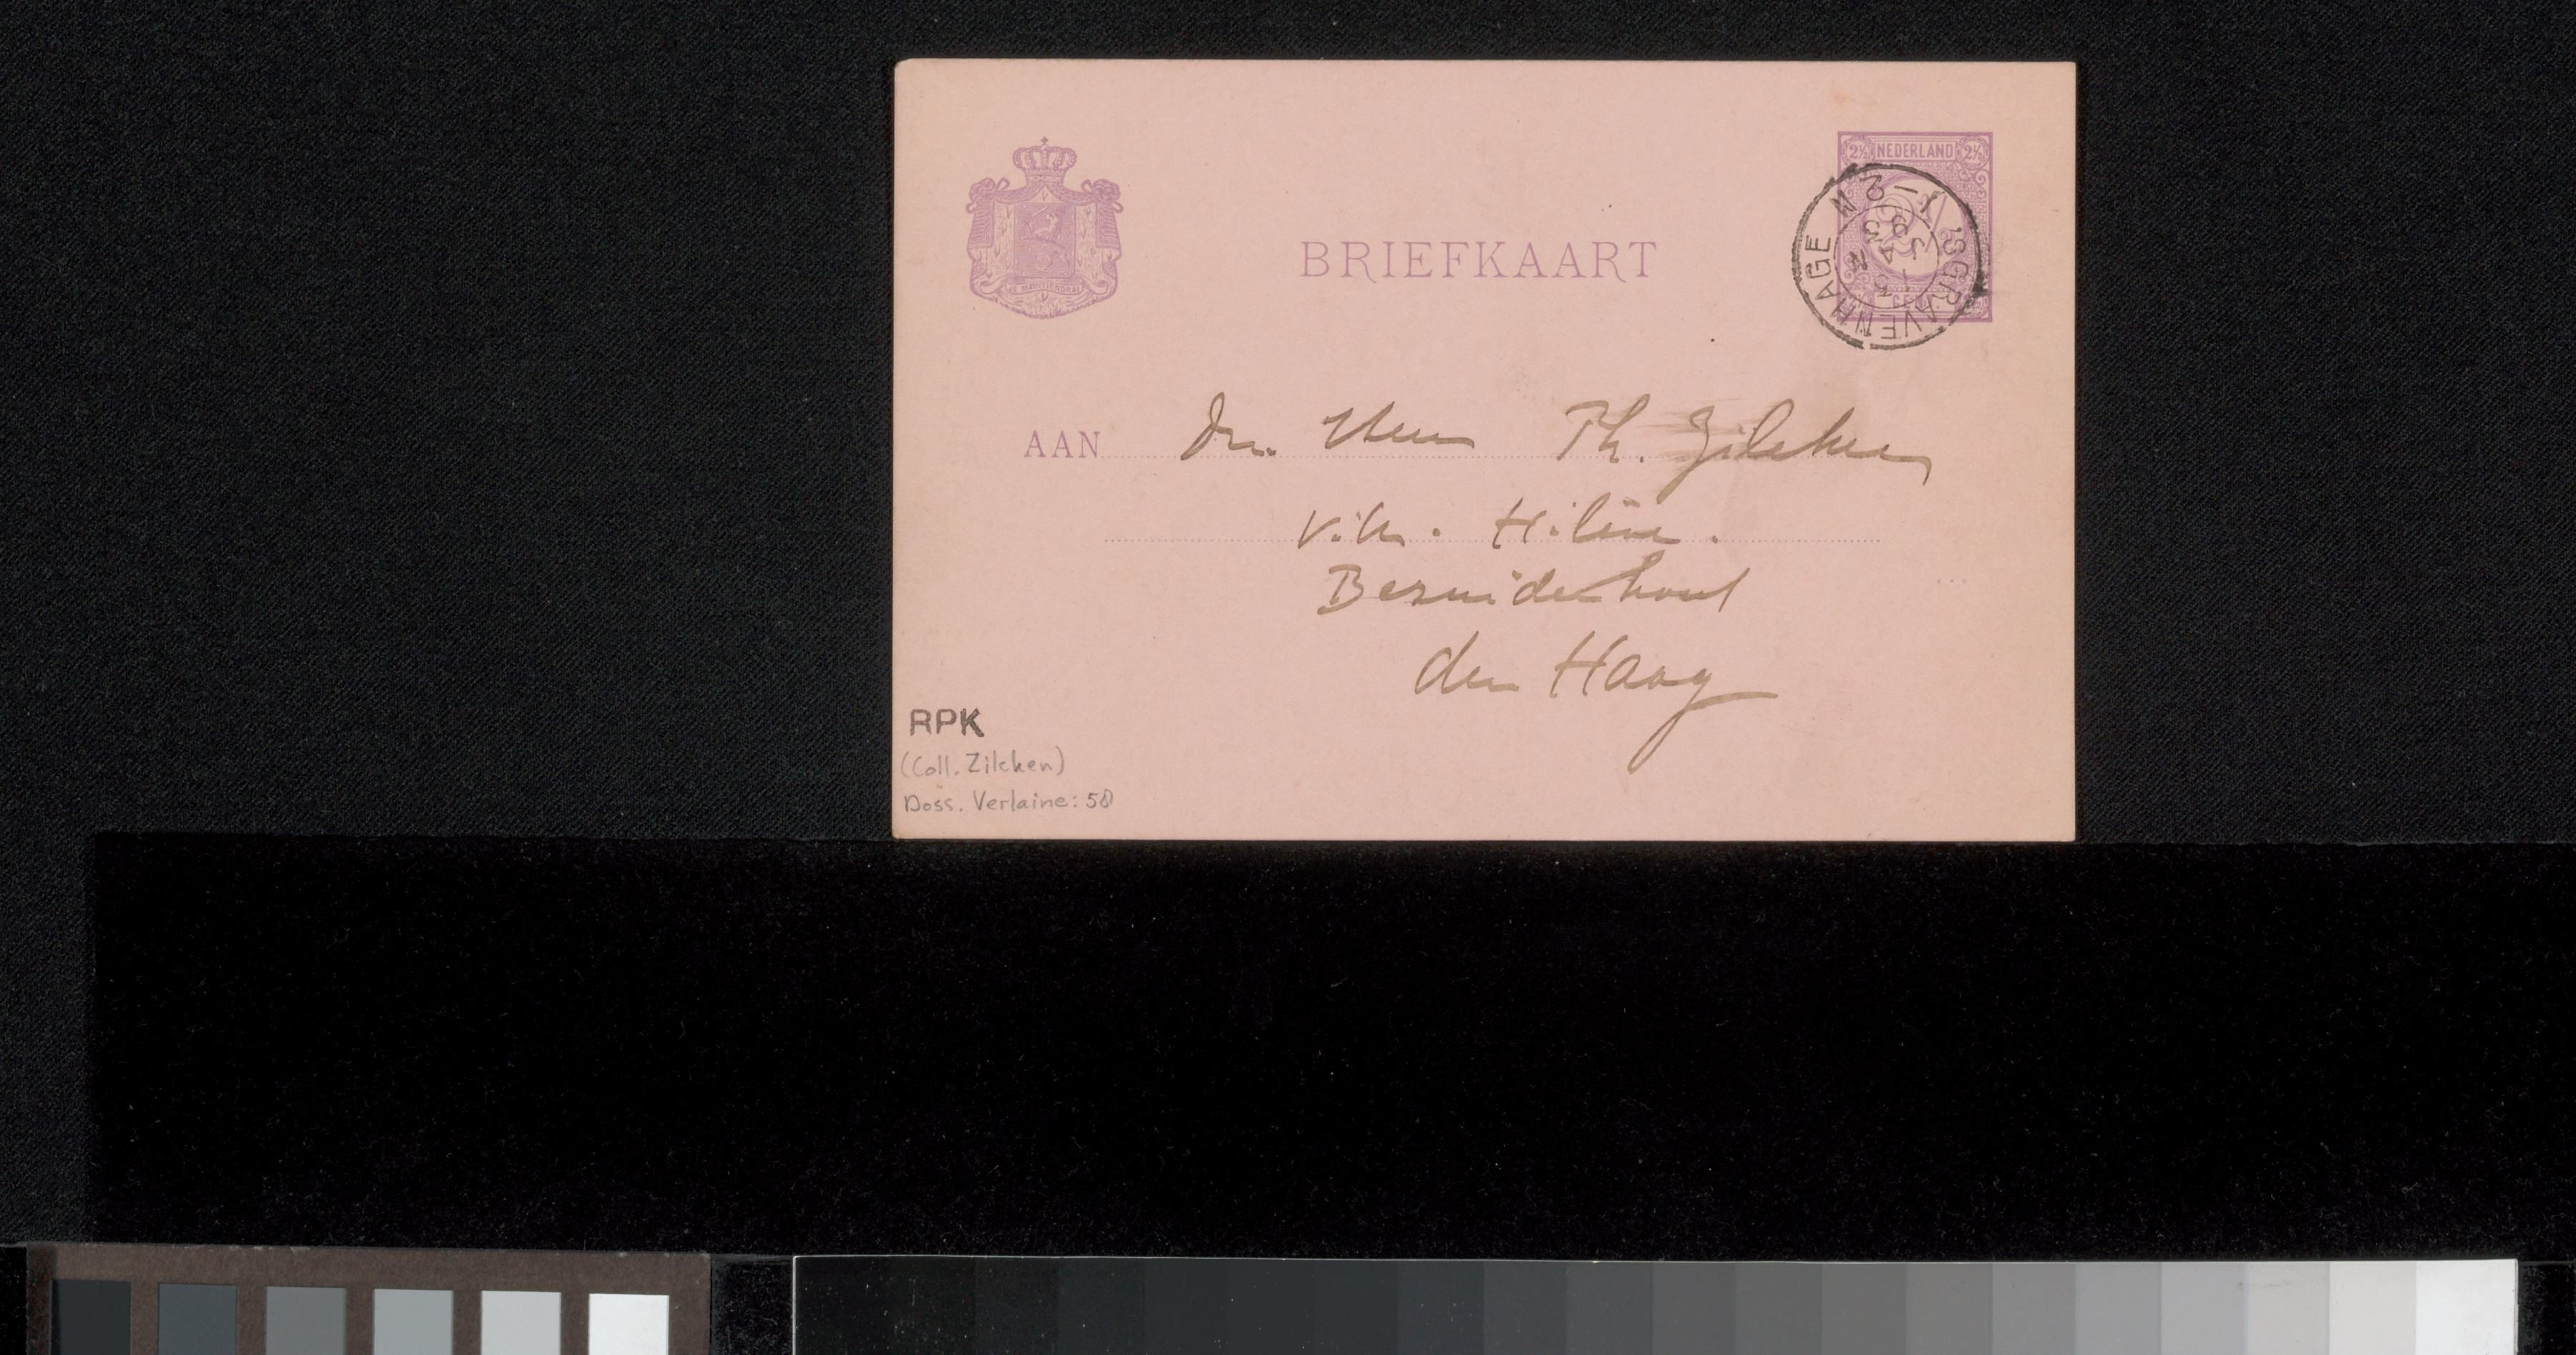 2½ NEDERLAND 2½
'SGRAVENHAGE
JE MAINTIENDRAI
BRIEFKAART
AAN den Heer Th. Zilcken
Villa Hélène.
Bezuidenhout
den Haag
RPK
(Coll. Zilcken)
Doss. Verlaine: 58